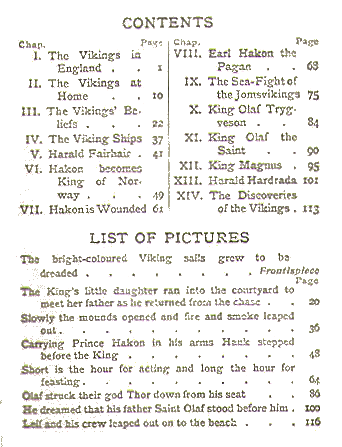 CONTENTS
Chap. Page
I. The Vikings in
England . . 1
II. The Vikings at
Home . . 10
III. The Vikings' Be-
liefs . . . 22
IV. The Viking Ships 37
V. Harald Fairhair . 41
VI. Hakon becomes
King of Nor-
way . . . 49
VII. Hakon is Wounded 61
Chap. Page
VIII. Earl Hakon the
Pagan . . 68
IX. The Sea-Fight of
the Jomsvikings 75
X. King Olaf Tryg-
veson . . 84
XI. King Olaf the
Saint . . 90
XII. King Magnus . 95
XIII. Harald Hardrada 101
XIV. The Discoveries
of the Vikings . 113
LIST OF PICTURES
The bright-coloured Viking sails grew to be
dreaded . . . . . . . Frontispiece
Page
The King's little daughter ran into the courtyard to
meet her father as he returned from the chase . . 20
Slowly the mounds opened and fire and smoke leaped
out . . . . . . . . . . 36
Carrying Prince Hakon in his arms Hauk stepped
before the King . . . . . . . 48
Short is the hour for acting and long the hour for
feasting . . . . . . . . . 64
Olaf struck their god Thor down from his seat . . 86
He dreamed that his father Saint Olaf stood before him . 100
Leif and his crew leaped out on to the beach . . . 116